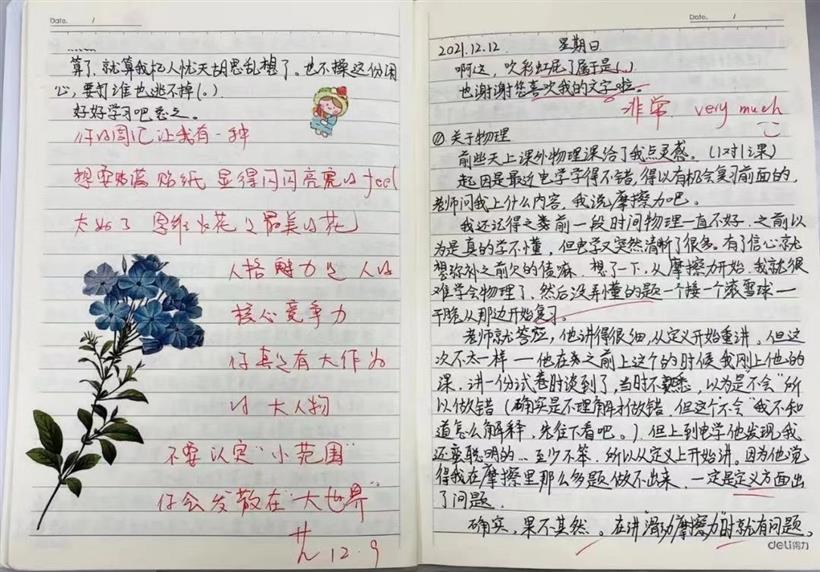 Date. /
......
算了,就算我杞人忧天胡思乱想了。也不操这份闲
心,要打谁也逃不掉(。)
好好学习吧总之。
你的周记让我有一种
想要贴满贴纸 显得闪闪亮亮的feel
太好了 思维火花是最美的花
人格魅力是人的
核心竞争力
你真是有大作为
的大人物
不要认定"小范围"
你会发散在"大世界"
12.9
Date. /
2021.12.12. 星期日
啊这,吹彩虹屁了属于是(..)
也谢谢您喜欢我的文字啦。
非常 very much
① 关于物理
前些天上课外物理课给了我点灵感。(1对1课)
起因是最近电学学得不错,得以有机会复习前面的,
老师问我上什么内容,我说:摩擦力吧。
我还记得之前一段时间物理一直不好,之前以
为是真的学不懂,但电学又突然清晰了很多。有了信心就
想弥补之前欠的债嘛,想了一下,从摩擦力开始,我就很
难学会物理了,然后没弄懂的题一个接一个滚雪球—
干脆从那边开始复习。
老师就答应,他讲得很细,从定义开始重讲。但这
次不太一样—他在之前上这个的时候我刚上他的
课,讲一份试卷时谈到了,当时不熟悉,以为是"不会"所
以做错(确实是不理解才做错,但这个"不会"我不知
道怎么解释,先往下看吧。)但上到电学他发现我
还蛮聪明的...至少不笨,所以从定义上开始讲。因为他觉
得我在摩擦里那么多题做不出来,一定是定义方面出
了问题。
确实,果不其然。在讲"滑动摩擦力"时就有问题。
deli得力